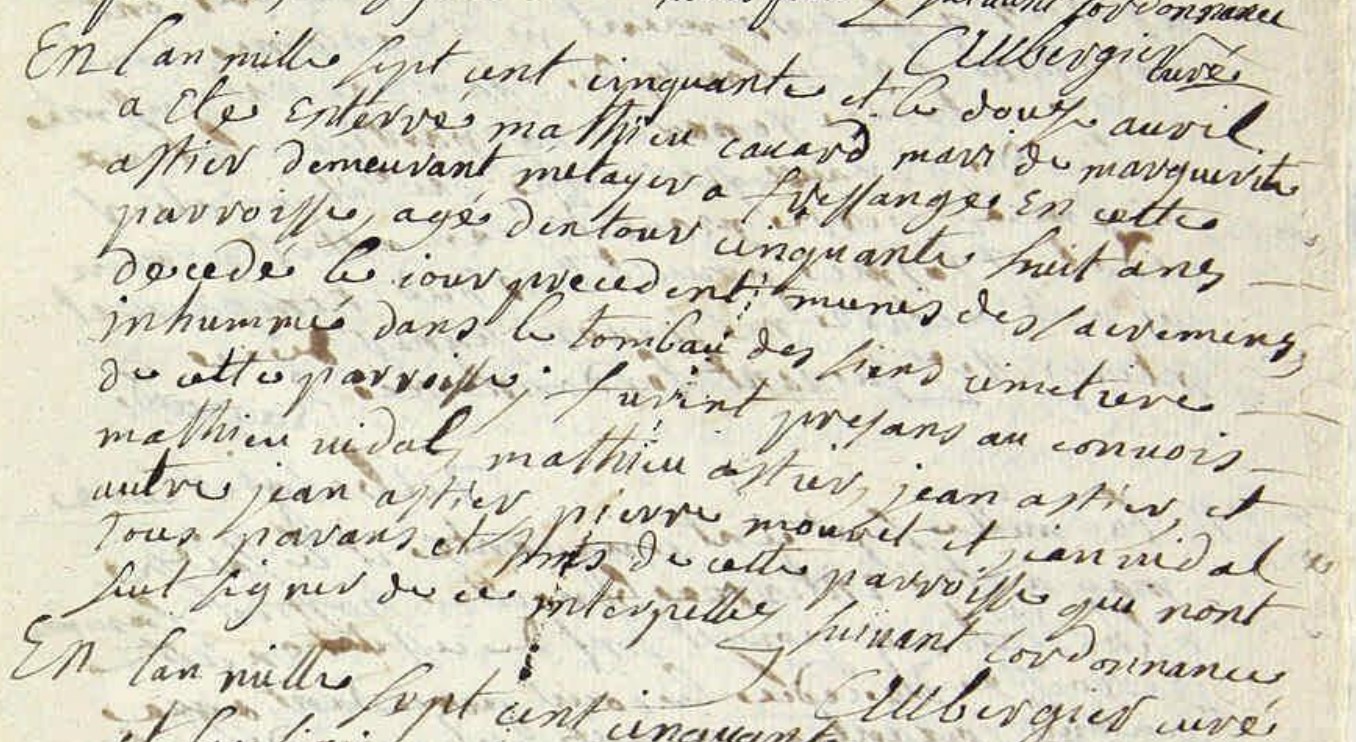 suivant lordonnance
Aubergier curé
En lan mille sept cent cinquante et le douse auril
a ete enterré mathieu cauard mari de marguerite
astier demeurant metayer a fressange en cette
parroisse, agé dentour cinquante huit ans
decedé le jour precedent munis des sacremens,
inhummé dans le tombau des siens cimetiere
de cette parroisse; furent presans au conuois
mathieu uidal, mathieu astier, jean astier, et
autre jean astier pierre mouret et jean uidal
tous parans et de cette parroisse qui nont
sut signer de ce interpellés suiuant lordonnance
Aubergier curé
En lan mille sept cent cinquante